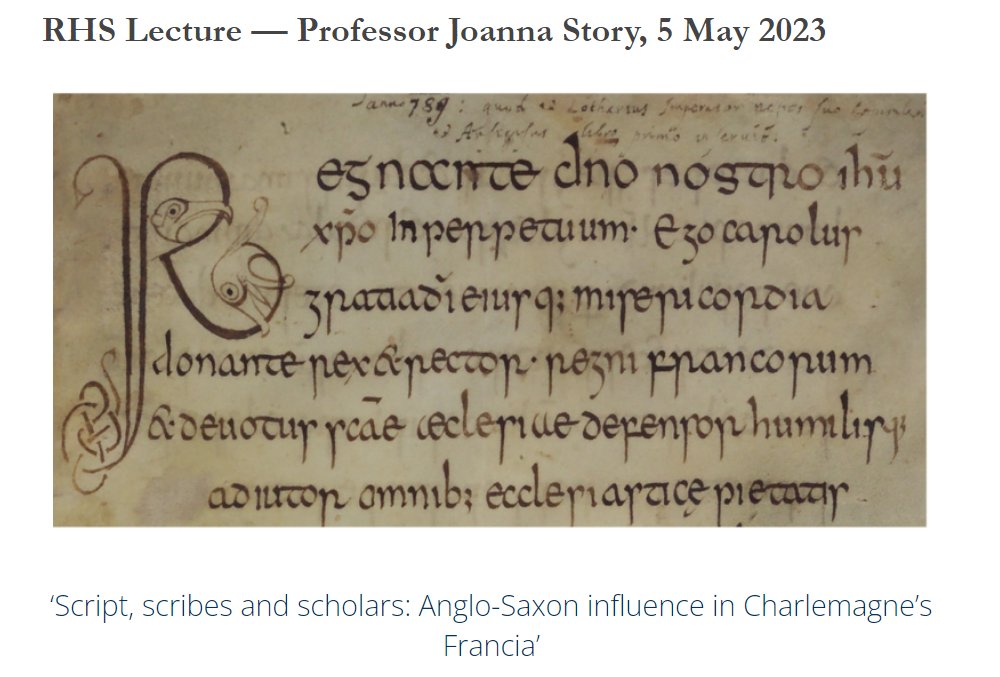 RHS Lecture — Professor Joanna Story, 5 May 2023
anno 789: quod et Lotherius Imperator nepos
et Ansegisus libro primo inseruit.
Regnante dn̄o nostro ihū
xp̄o Inperpetuum· Ego carolus
gratiadī eiusq; misericordia
donante rex & rector· regni francorum
& deuotus scāe aeclesiae defensor humilisq;
adiutor omnib; ecclesiasticę pietatis
‘Script, scribes and scholars: Anglo-Saxon influence in Charlemagne’s
Francia’